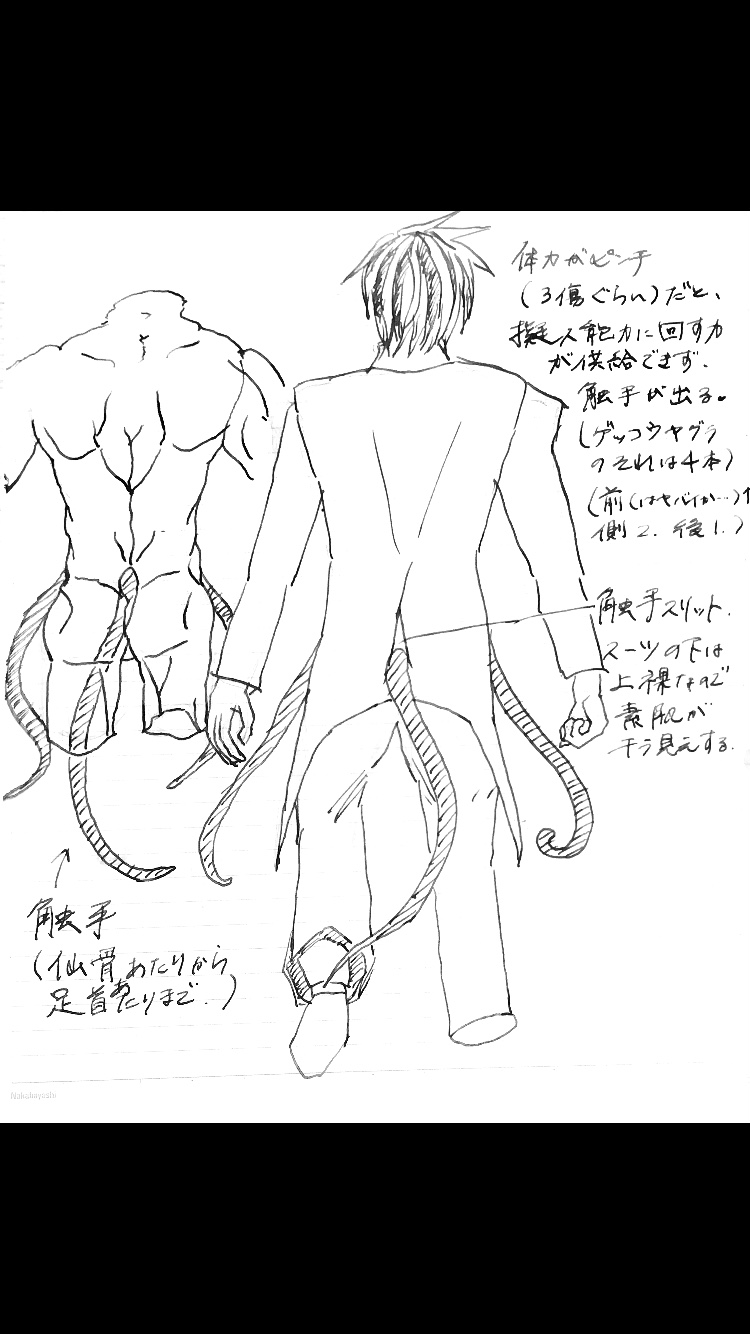 体力がピンチ
(3傷ぐらい)だと、
擬人能力に回す力
が供給できず、
触手が出る。
(ゲッコウヤグラ
のそれは4本)
(前(はヤバイか…)1
側2. 後1.)
触手スリット.
スーツの下は
上裸なので
素肌が
チラ見えする.
↑
触手
(仙骨あたりから
足首あたりまで.)
Nakabayashi